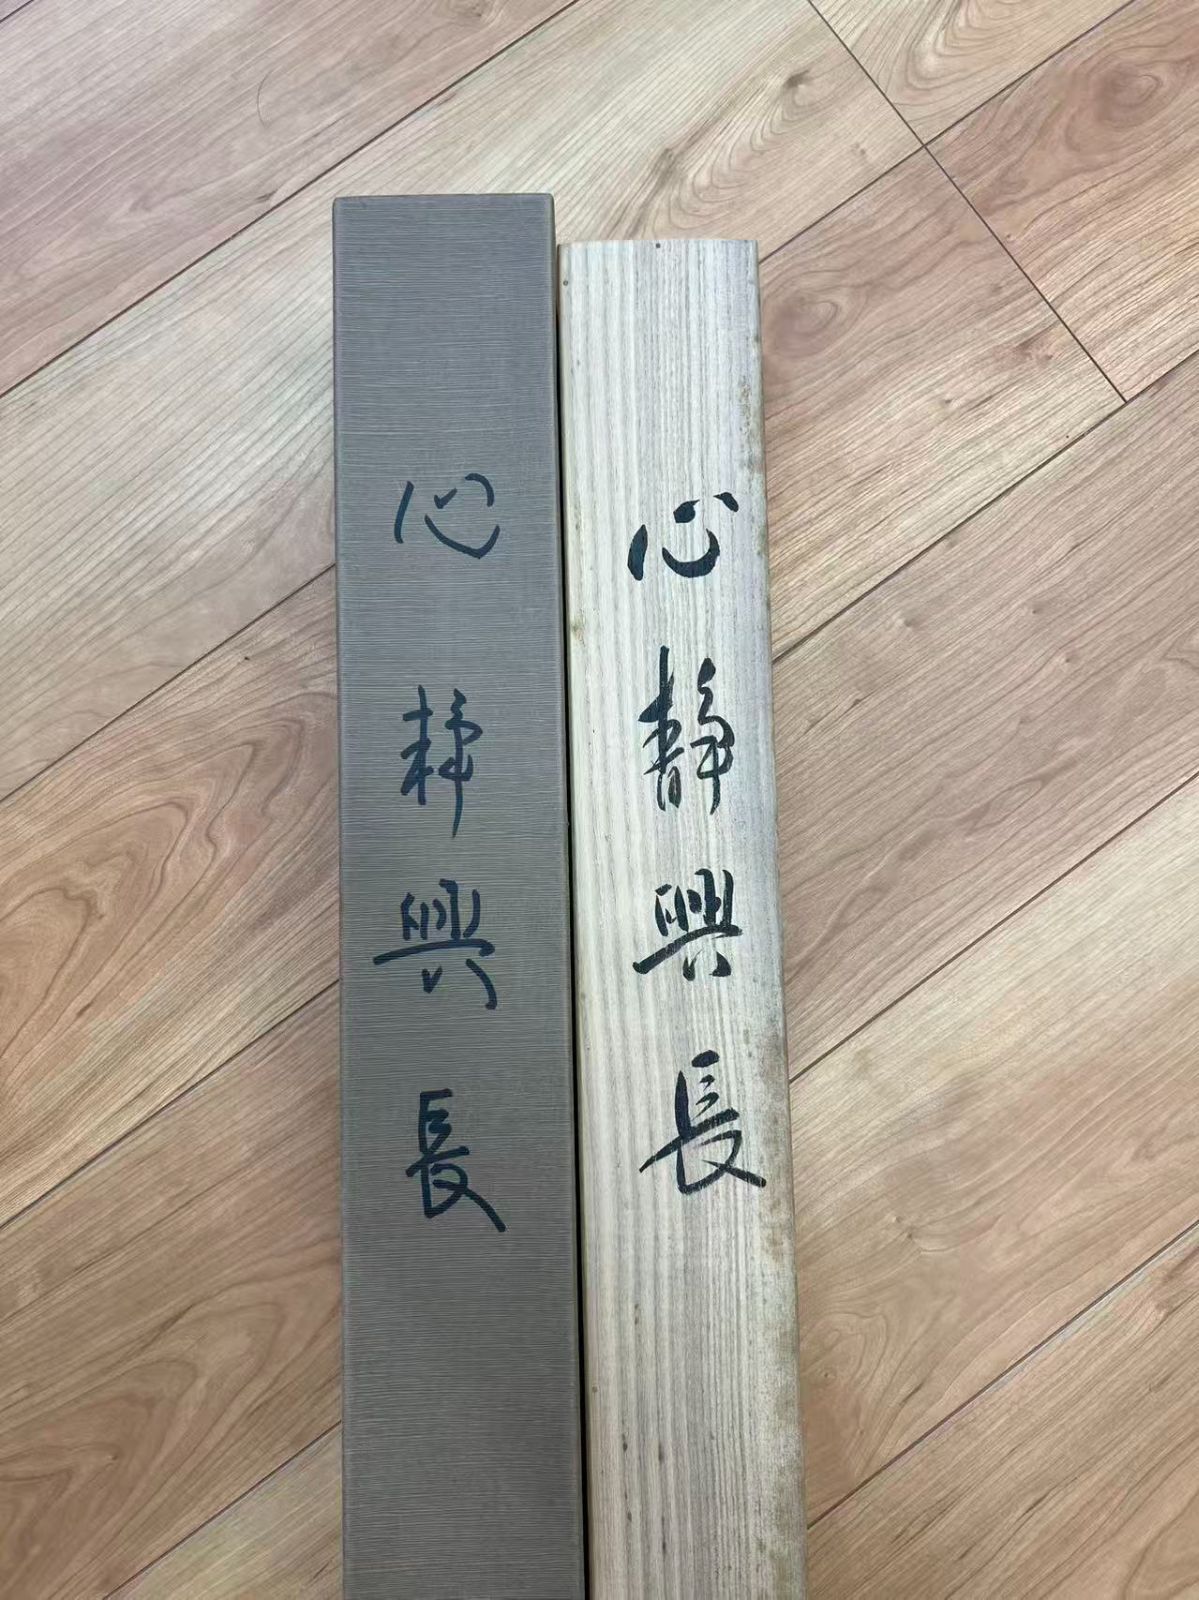 心静興長
心静興長